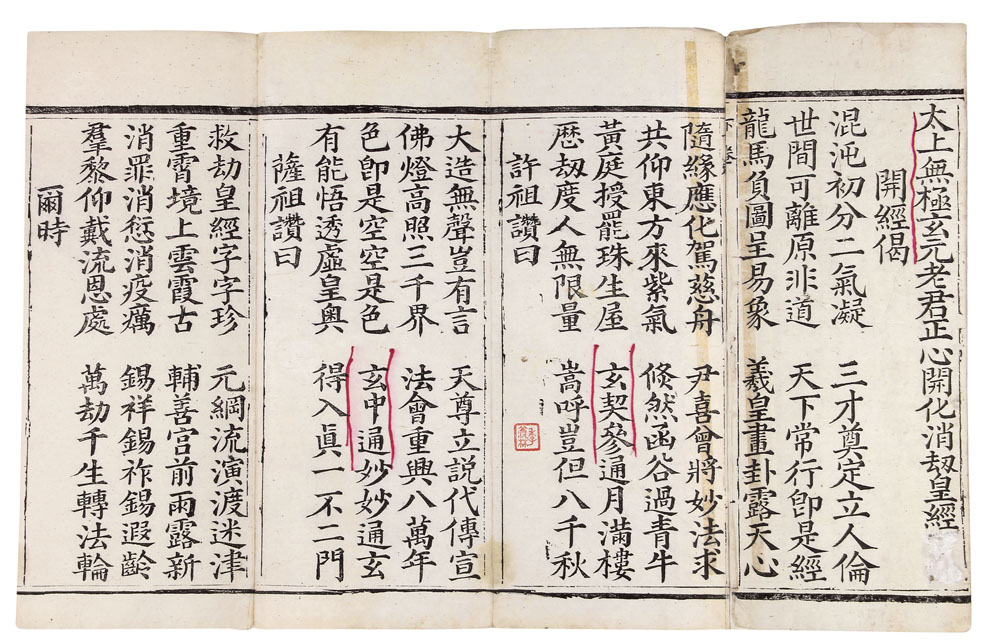 太上無極玄元老君正心開化消劫皇經
開經偈
混沌初分二氣凝 三才奠定立人倫
世間可離原非道 天下常行卽是經
龍馬負圖呈易象 羲皇畫卦露天心
隨緣應化駕慈舟 尹喜曾將妙法求
共仰東方來紫氣 倐然函谷過青牛
黃庭授罷珠生屋 玄契參通月滿樓
歴刼度人無限量 嵩呼豈但八千秋
許祖讚曰
大造無聲豈有言 天尊立説代傳宣
佛燈高照三千界 法會重興八萬年
色卽是空空是色 玄中通妙妙通玄
有能悟透虛皇奥 得入眞一不二門
薩祖讚曰
救劫皇經字字珍 元綱流演渡迷津
重霄境上雲霞古 輔善宮前雨露新
消罪消愆消疫癘 錫祥錫祚錫遐齡
羣黎仰戴流恩處 萬劫千生轉法輪
爾時